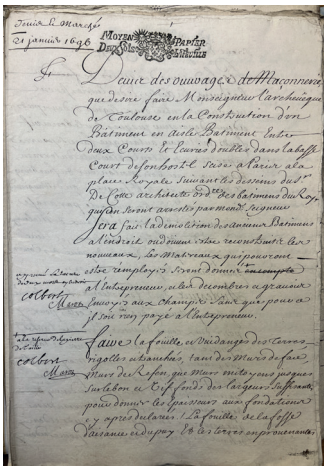 21 janvier 1696
MOYEN PAPIER
Devis des ouvrages de Maçonnerie
que desire faire Monseigneur l'archevesque
de Toulouse en la Constitution d'un
Batiment en aisle Batiment Entre
deux Cours et Ecuries doubles dans la basse
Court de son hostel scise a Paris a la
place Royale suivant les desseins du Sr
De Cotte architecte ordre des batimens du Roy
qui en seront arrestés par mond. Seigneur
Sera fait la demolition des anciens Batimens
a l'endroit ou doivent estre reconstruit les
nouveaux, les Matereaux qui pouront
estre remployés seront donnés en compte
a l'entrepreneur, et les decombres et gravois
Envoyés aux champs sans que pour ce
il soit rien payé a l'Entrepreneur.
Colbert
Faire la fouille, et vuidanges des terres
rigolles et tranchées, tant des Murs de face
Murs de Refan, que Murs mitoyens jusques
sur le bon et vif fonds des largeurs suffisantes
pour donner les Epaisseurs aux fondations
cy apres declarées. La fouille de la fosse
d'aisance et du puy Et les terres en provenantes
Colbert